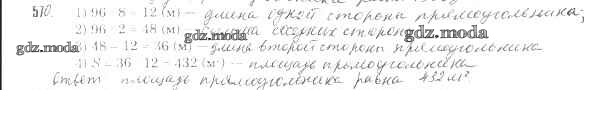 570. 1) 96 : 8 = 12 (м) – длина одной стороны прямоугольника;
2) 96 : 2 = 48 (м) – сторон
gdz.moda gdz.moda
3) 48 – 12 = 36 (м) – длина второй стороны прямоугольника
4) S = 36 · 12 = 432 (м²) – площадь прямоугольника
Ответ: площадь прямоугольника равна 432 м²